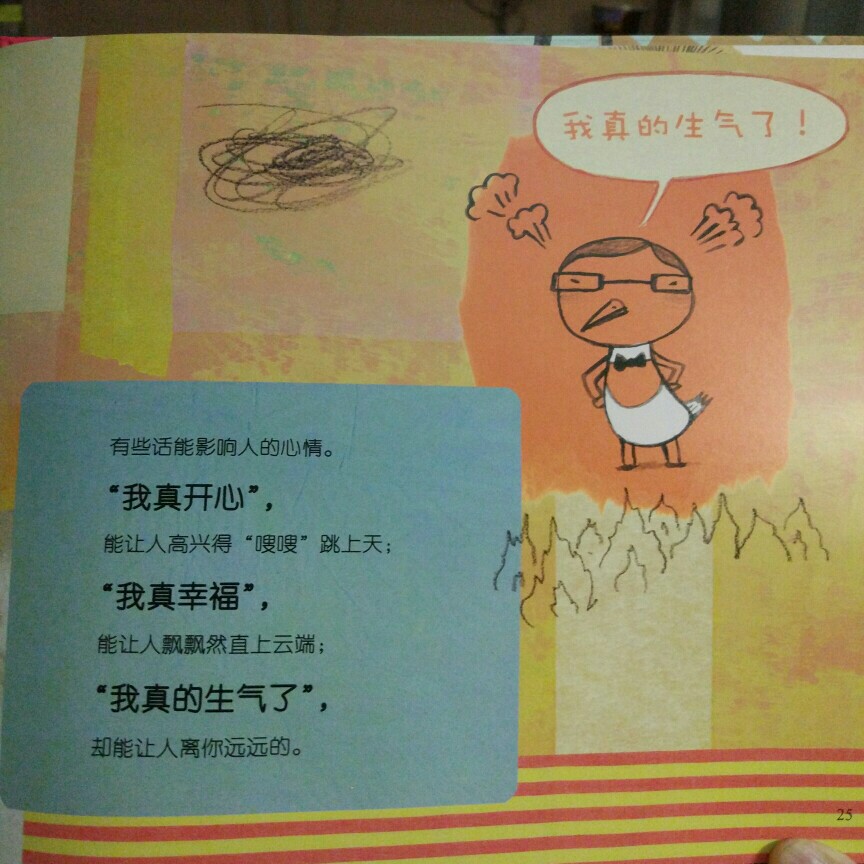 我真的生气了！
有些话能影响人的心情。
“我真开心”，
能让人高兴得“嗖嗖”跳上天；
“我真幸福”，
能让人飘飘然直上云端；
“我真的生气了”，
却能让人离你远远的。
25